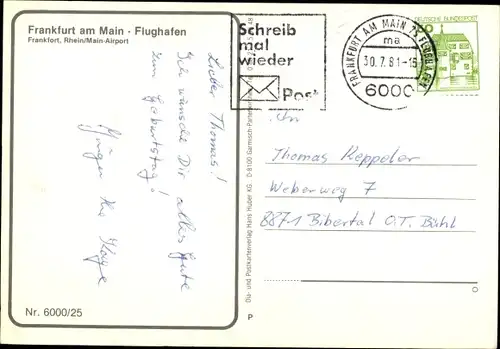 Frankfurt am Main · Flughafen
Frankfurt, Rhein/Main-Airport
Lieber Thomas!
Ich wünsche Dir alles Gute
zum Geburtstag!
Nr. 6000/25
Schreib
mal
wieder
Post
FRANKFURT AM MAIN 75 FLUGHAFEN
ma
30.7.81-15
6000
DEUTSCHE BUNDESPOST
An
Thomas Keppeler
Weberweg 7
8871 Bibertal O.T. Bühl
Dia- und Postkartenverlag Hans Huber KG · D-8100 Garmisch-Partenkirchen
P